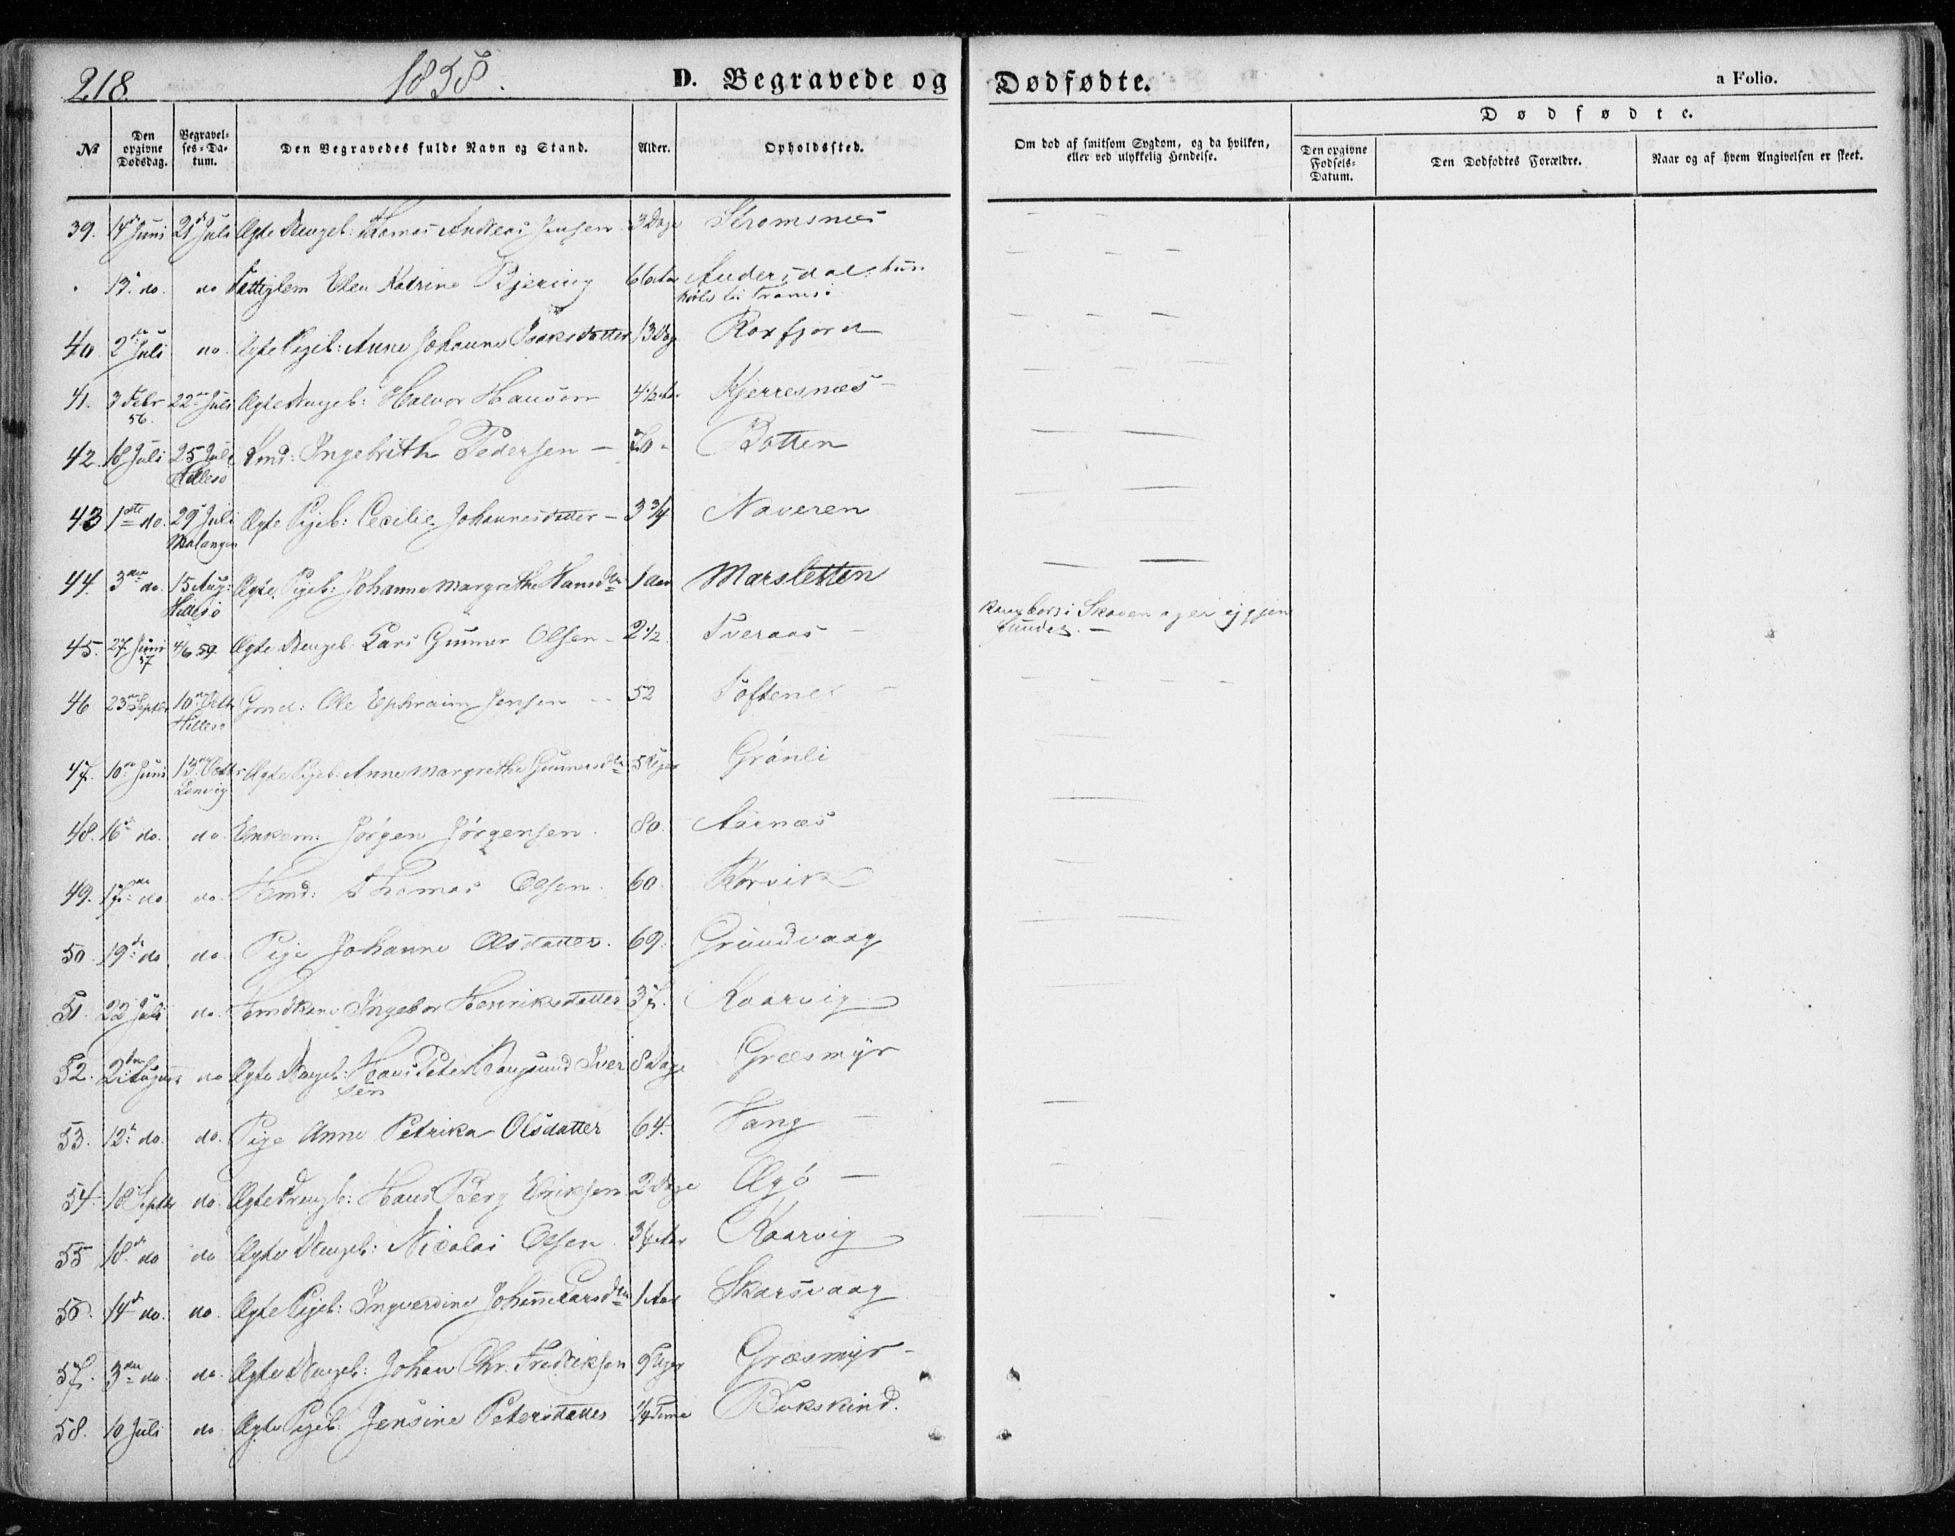 218 1858. D. Begravede og Dødfødte. a Folio.
№ Den opgivne Dødsdag. Begravelses-Datum. Den Begravedes fulde Navn og Stand. Alder. Opholdssted. Om død af smitsom Sygdom, og da hvilken, eller ved ulykkelig Hendelse. Dødfødte. Den opgivne Fødsels-Datum. Den Dødfødtes Forældre. Naar og af hvem Angivelsen er skeet.
39. 14 Juni 21 Juli Ægte Drengeb: Thomas Andreas Jensen 3 Dage Strømsnæs
13. do. do Fattiglem Elen Katrine Bjering 66 Aar Andersdal
40. 2 Juli do. Ægte Pigeb: Anne Johanne Isaksdatter 13 Dag Roxfjord
41. 3 Febr 56. 22 Juli Ægte Drengeb: Halvor Hansen 4½ Aar Kjerresnæs
42. 18 Juli 25 Juli Hillesø Ingebrith Pedersen 70 Botten
43 1ste do. 29 Juli Malangen Ægte Pigeb: Cecilie Johannesdatter 3¾ Naveren
44. 3 do. 15 Aug: Hillesø Ægte Pigeb: Johanne Margrethe Hansdtr 1 Aar Marsletten
45. 27 Juni 57 4/6 59. Ægte Drengeb: Lars Gunner Olsen 2½ Tveraas
46 23 Septbr 10 Octbr Hillesø Gmd: Ole Ephraim Jensen 52 Toftene
47. 10 Juni 13 Octbr Lenvig Ægte Pigeb: Anne Margrethe Gunnersdtr 5 Uger Grønli
48. 16 do. do. Enkem: Jørgen Jørgensen. 80. Aarnæs
49. 17 do do. Thomas Olsen. 60. Rørvik
50. 19 do do. Pige Johanne Olsdatter. 69. Grundvaag
51. 22 Juli do. Ingebor Henriksdatter 37. Kaarvig
52. 2 August do Ægte Drengeb: Hans Peter Iversen 8 Dage Græsmyr
53. 12 do. do. Pige Anne Petrika Olsdatter 64. Vang
54. 18 Septbr do. Ægte Drengeb: Hans Berg Eriksen 2 Dage
55 18 do do Ægte Drengeb: Nicolai Olsen ¾ Aar Kaarvig
56. 14 do. do. Ægte Pigeb: Ingverdine 1 Aar Skarsvaag
57. 3 do do. Ægte Drengeb: Johan Chr. Fredriksen 9 Uger Græsmyr
58. 10 Juli do Ægte Pigeb: Jensine Petersdatter ¼ Time Bukskind.